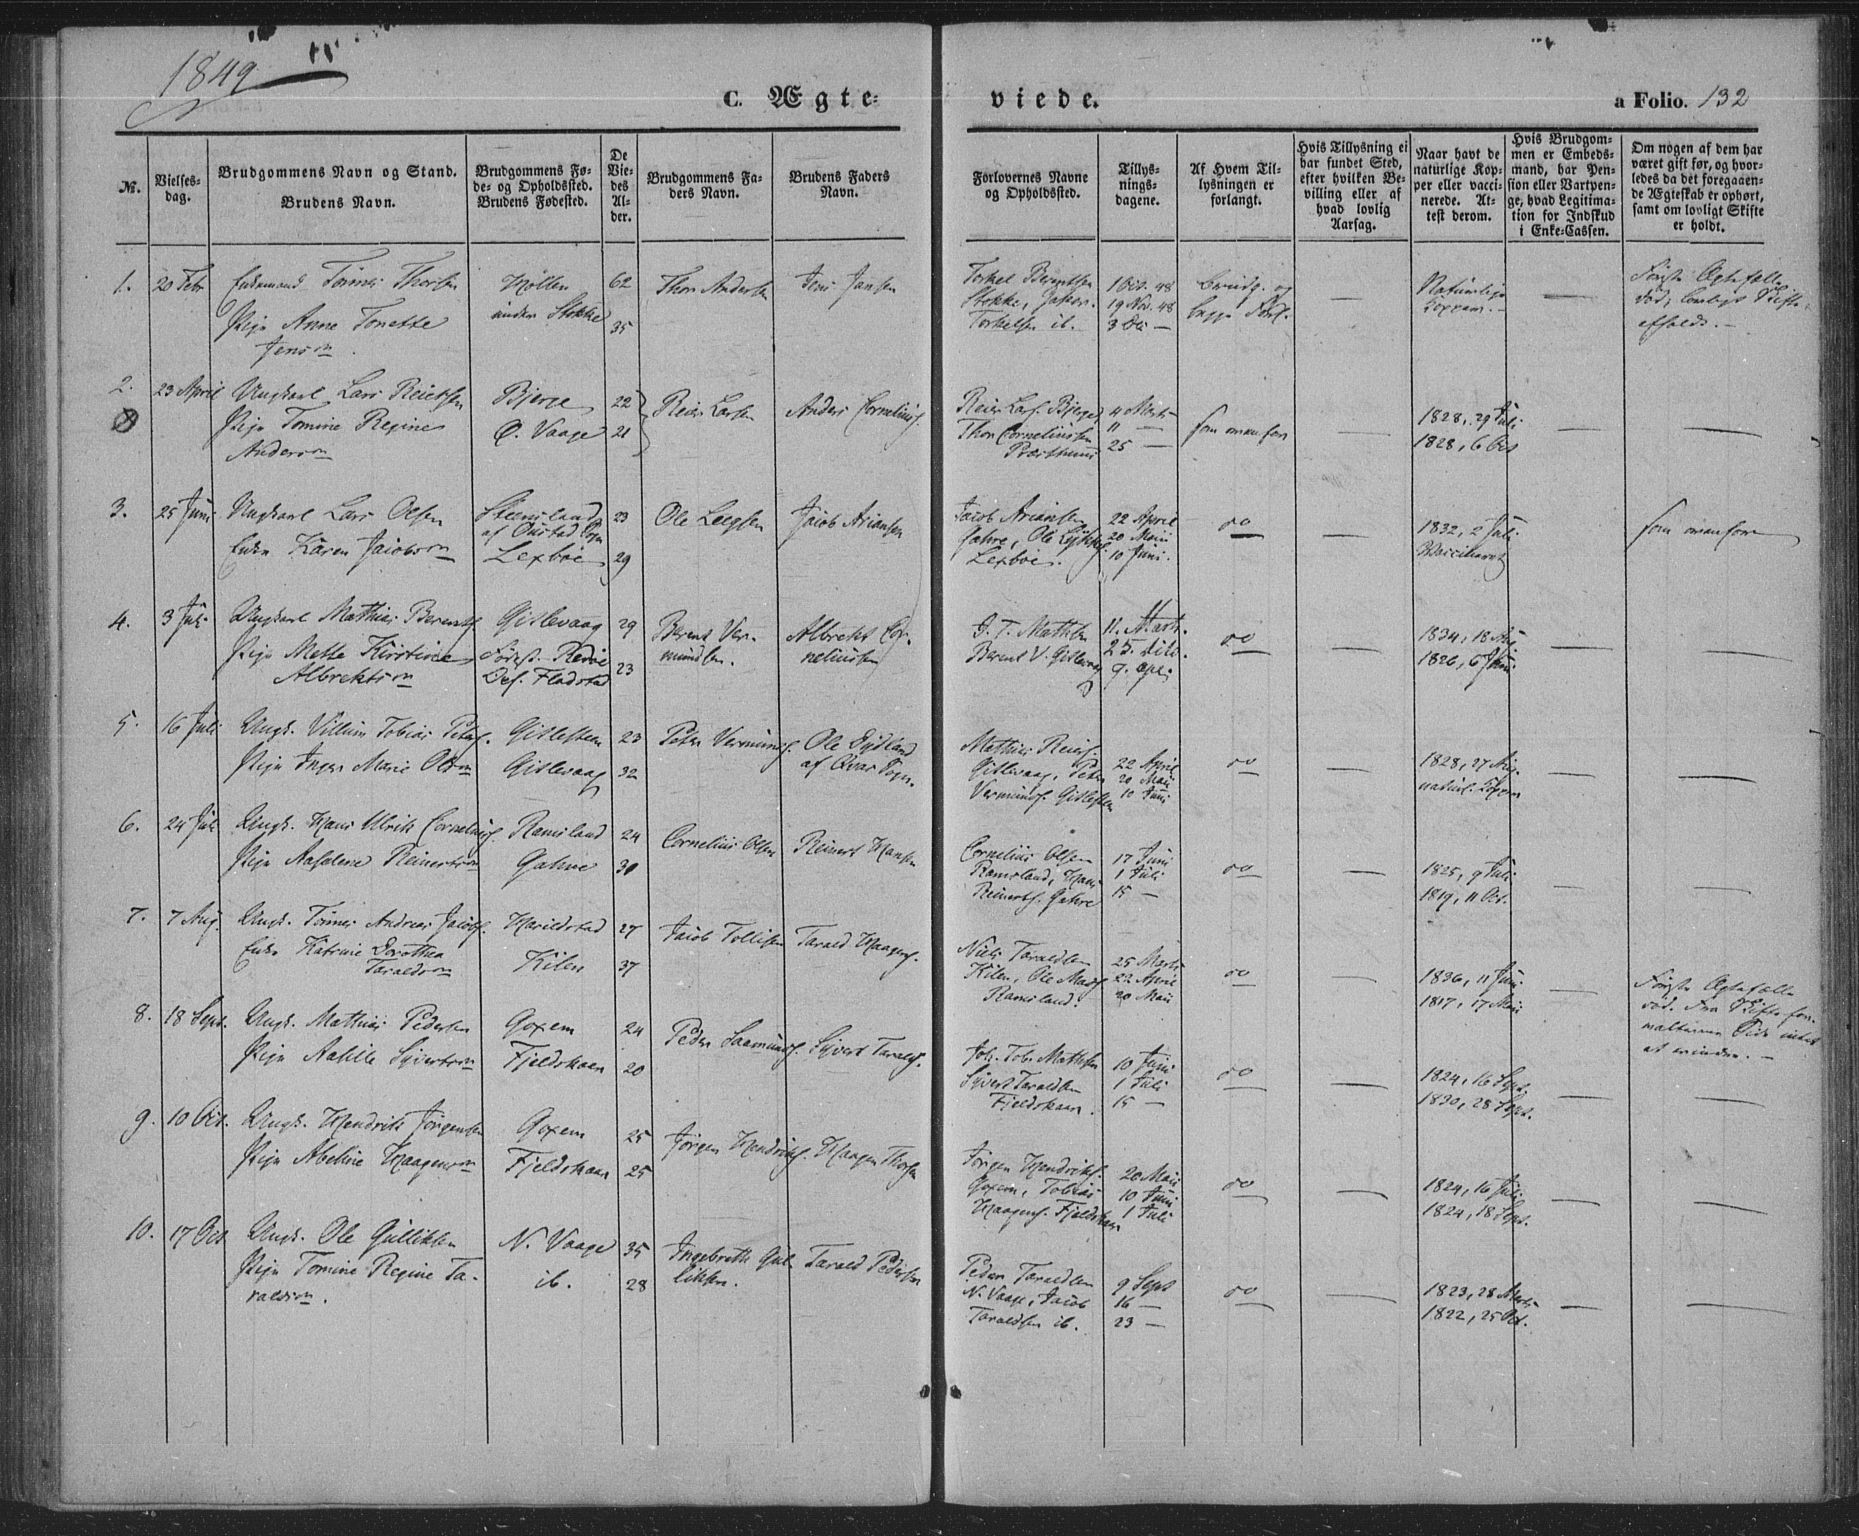 1849
C. Ægte-
viede.
a Folio. 132
№.
Vielses-
dag.
Brudgommens Navn og Stand.
Brudens Navn.
Brudgommens Fø-
de- og Opholdssted.
Brudens Fødested.
De
Vie-
des
Al-
der.
Brudgommens Fa-
ders Navn.
Brudens Faders
Navn.
Forlovernes Navne
og Opholdssted.
Tillys-
nings-
dagene.
Af Hvem Til-
lysningen er
forlangt.
Hvis Tillysning ei
har fundet Sted,
efter hvilken Be-
villing eller af
hvad lovlig
Aarsag.
Naar havt de
naturlige Kop-
per eller vacci-
nerede. At-
test derom.
Hvis Brudgom-
men er Embeds-
mand, har Pen-
sion eller Vartpen-
ge, hvad Legitima-
tion for Indskud
i Enke-Cassen.
Om nogen af dem har
været gift før, og hvor-
ledes da det foregaaen-
de Ægteskab er ophørt,
samt om lovligt Skifte
er holdt.
1. 20 Febr
Enkemand Tønnes Thorsen
Pige Anne Tonette
Jensen
under Stokke
62
35
Thor Andersen
Jens Jansen
Torkel Berentsen
Stokke,
Torkelsen ib.
1 Oct. 48
19 Nov. 48
3 Dec
Brudg. og
begge Forl.
Naturlige
Første Ægtefælle
død, lovligt Skifte
afholdt.
2. 23 April
Ungkarl Lars Reiersen
Pige Tomine Regine
Andersen
Bjerge
O. Vaage
22
21
Reier Larsen
Anders Cornelius.
Reier Lars. Bjerge
Thor Corneliussen
4 Marts
11 —
25 —
som ovenfor
1828, 29 Juli
1828, 6 Oct
3. 25 Juni
Ungkarl Lars Olsen
Enke Karen Jacobsen
23
29
Jacob Ariansen
Jacob Ariansen
22 April
20 Maii
10 Juni.
oo
1832, 2 Juli
som ovenfor
4. 3 Juli
Ungkarl Mathias Berents.
Pige Mette Kirstine
Albrektsen
Gitlevaag
29
23
Berent Ver-
mundsen.
Albrekt Cor-
neliussen
Berent V. Gitlevaag
11. Marts.
25. dito.
9. Apr.
oo
1834, 18
1826, 6 Juni
5. 16 Juli
Ungk. Villum Tobias Peters.
Pige Inger Marie Olsen
Gitlesteen
Gitlevaag
23
32
Peter Vermunds.
Ole Eydland
af Qvas Sogn.
Mathias Reiers.
Gitlevaag, Peter
Vermunds. Gitlesteen
22 April
20 Maii
10 Juni
oo
1828, 27
6. 24 Juli
Ungk. Hans Ulrik Cornelius.
Pige Aasalene Reinertsen
Ramsland
Gahre
24
30
Cornelius Olsen
Reinert Hansen
Cornelius Olsen
Ramsland, Hans
Reinerts. Gahre
17 Juni
1 Juli
15 —
oo
1825, 9 Juli
1819, 11 Oct.
7. 7 Aug.
Ungk. Tønnes Andreas Jacobs.
Enke Katrine Dorothea
Taraldsen
Harildstad
Kilen
27
37
Jacob Tollisen
Tarald Haagens.
Niels Taraldsen
Kilen, Ole Mads.
Ramsland.
25 Marts
22 April
20 Maii
oo
1836, 11 Juni
1817, 17 Maii
Første Ægtefælle
død. Fra Skiftefor-
valterens Side intet
at erindre. —
8. 18 Sept.
Ungk. Mathias Pedersen
Pige Aalille Syvertsen
Goxem
Fjeldskaar
24
20
Peder Saamunds.
Syvert Taralds.
Joh. Tob. Mathisen
Syvert Taraldsen
Fjeldskaar.
10 Juni
1 Juli
15 —
oo
1824, 16 Sept.
1830, 28 Sept.
9. 10 Oct.
Ungk. Hendrik Jørgensen
Pige Abeline Haagensen
Goxem
Fjeldskaar
25
25
Jørgen Hendriks.
Haagen Thorsen
Jørgen Hendriks.
Goxem, Tobias
Haagens. Fjeldskaar
20 Maii
10 Juni
1 Juli
oo
1824, 16 Juli
1824, 18 Sept.
10. 17 Oct
Ungk. Ole Gulliksen
Pige Tomine Regine Ta-
raldsen.
N. Vaage
ib.
35
28
Ingebreth Gul-
liksen.
Tarald Pedersen
Peder Taraldsen
N. Vaage, Jacob
Taraldsen ib.
9 Sept
16 —
23 —
oo
1823, 28 Marts
1822, 25 Oct.